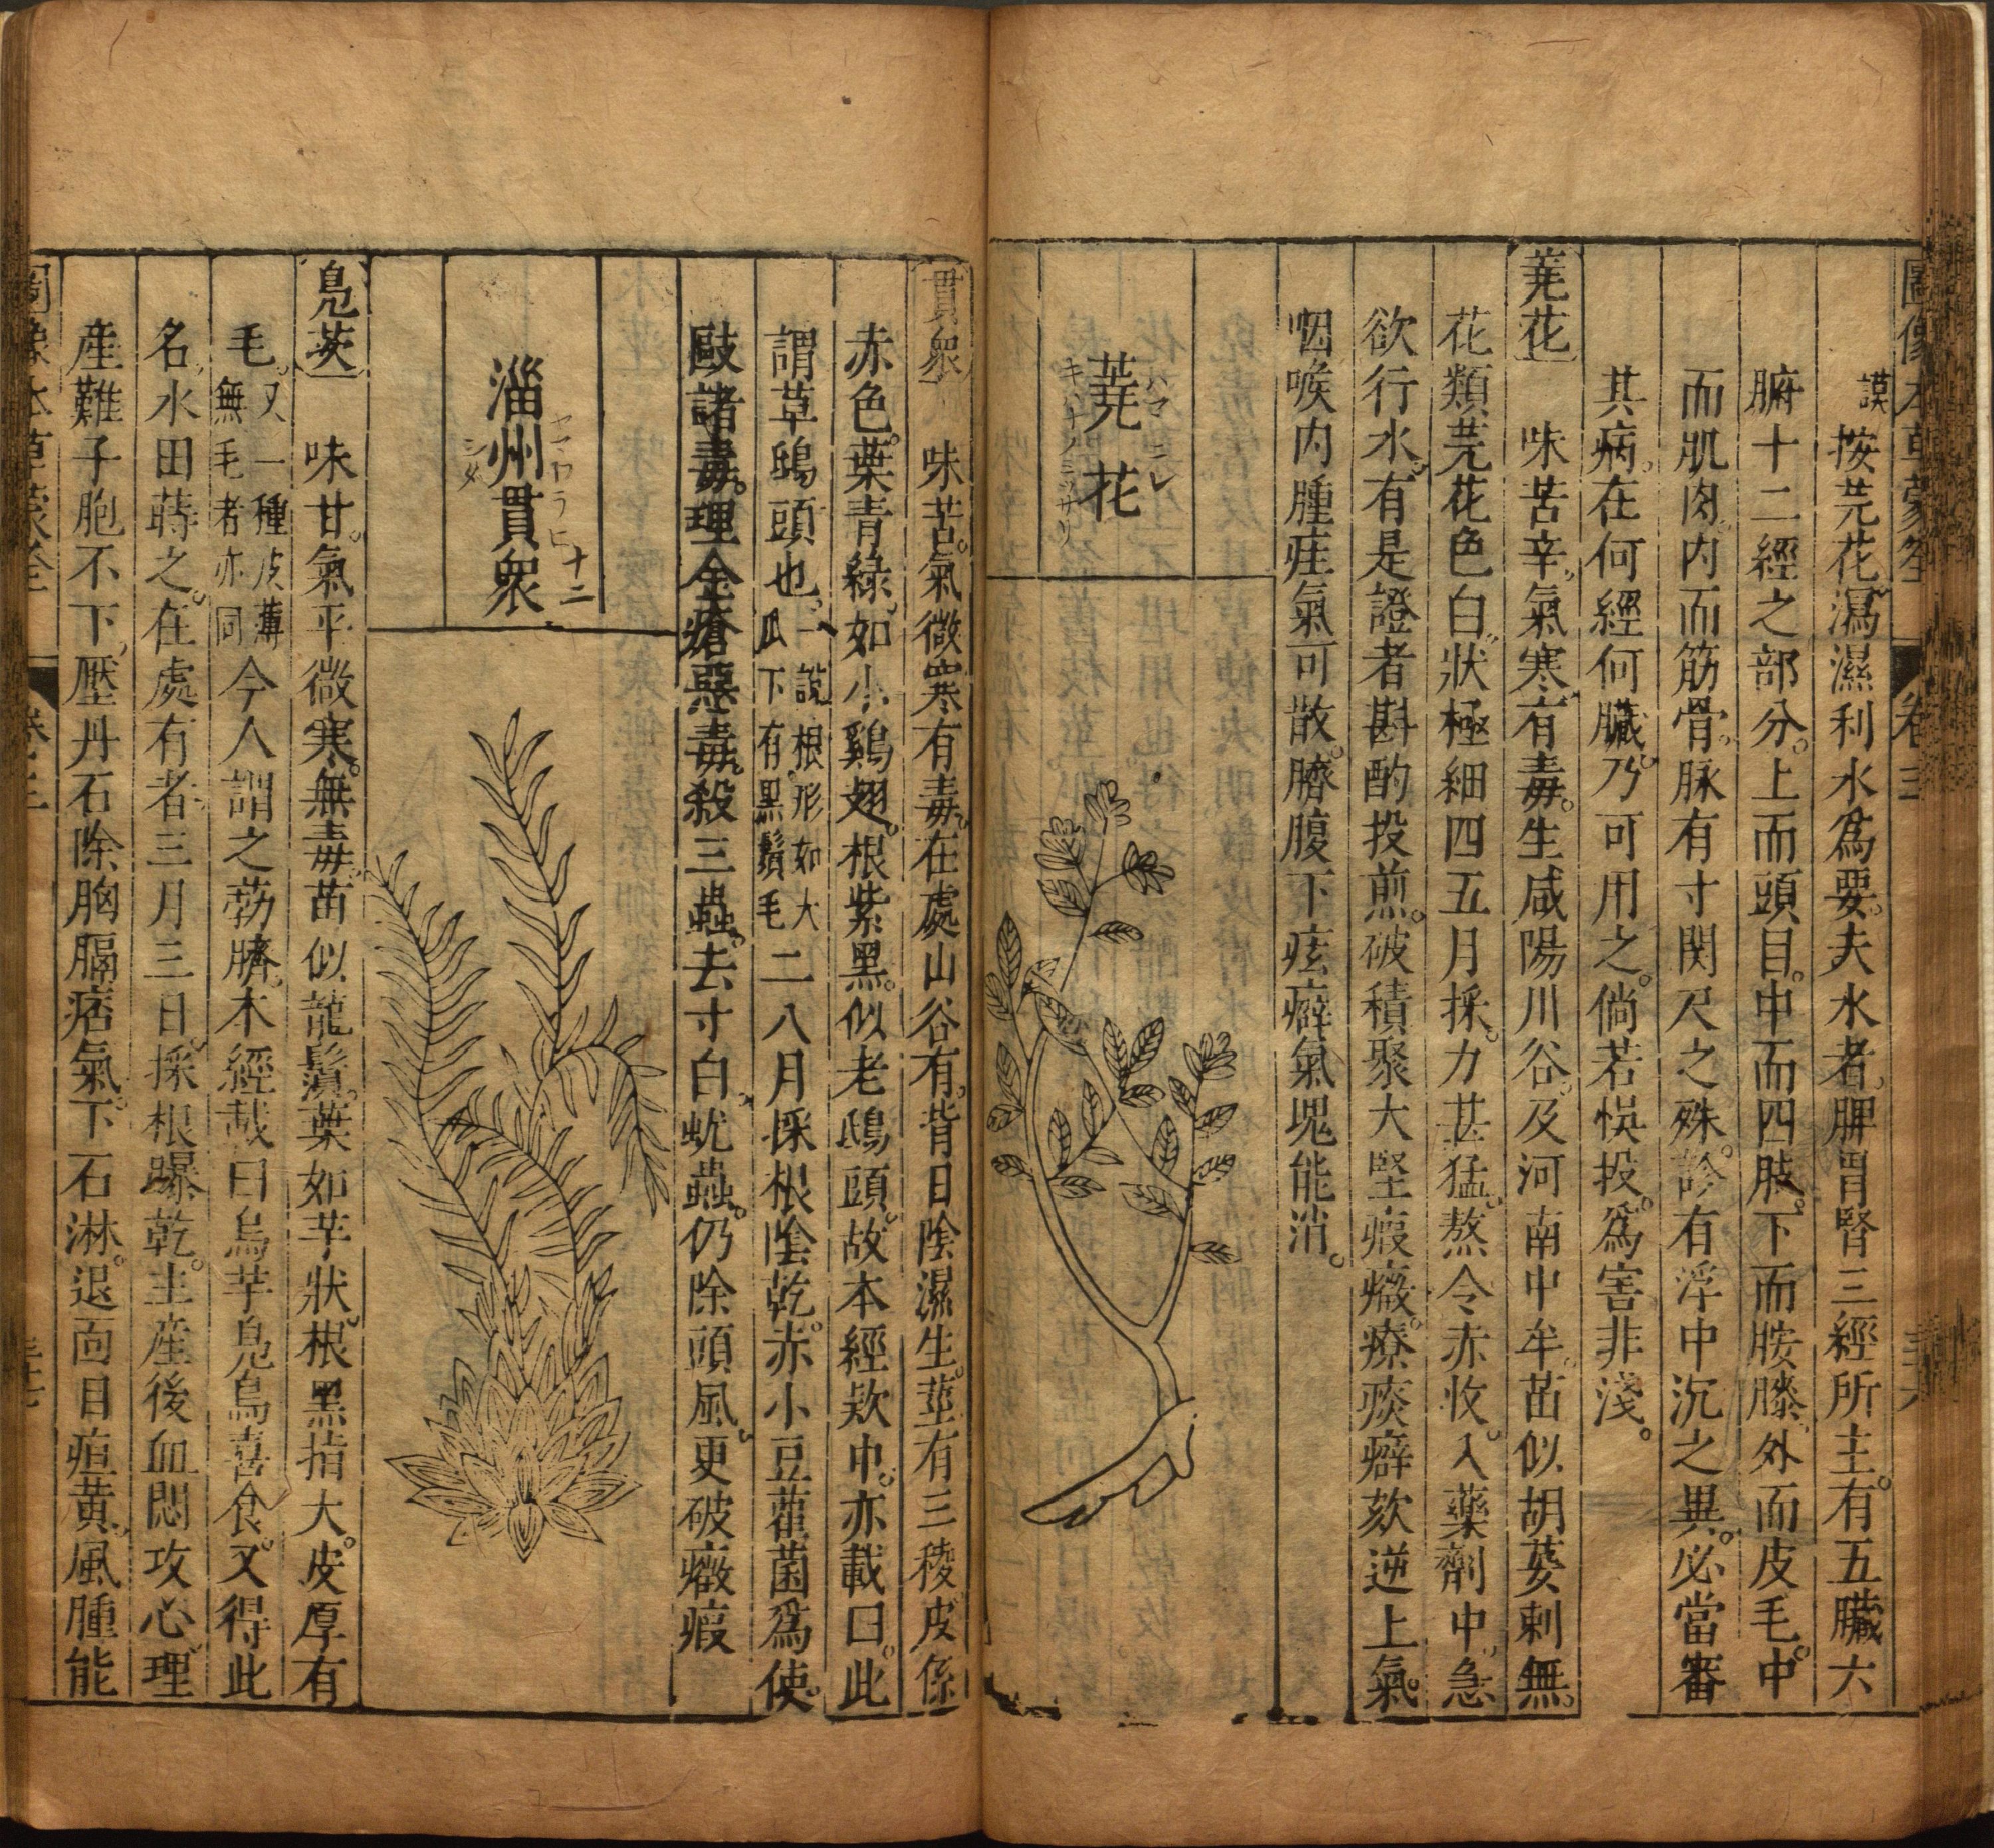 圖像本草蒙筌 卷三
謨按芫花瀉濕利水爲要夫水者脾胃腎三經所主有五臟六
腑十二經之部分上而頭目中而四肢下而胺膝外而皮毛中
而肌肉内而筋骨脉有寸関尺之殊診有浮中沉之異必當審
其病在何經何臟乃可用之倘若悮投爲害非淺
蕘花 味苦辛氣寒有毒生咸陽川谷及河南中牟苗似胡荽刺無
花類芫花色白狀極細四五月採力甚猛熬令赤收入藥劑中急
欲行水有是證者斟酌投煎破積聚大堅瘕癥療痰癖欬逆上氣
咽喉内腫疰氣可散臍腹下痃癖氣塊能消
蕘花
ハマニレ
貫衆 味苦氣微寒有毒在處山谷有背日陰濕生莖有三稜皮係
赤色葉青綠如小鷄翅根紫黑似老鴟頭故本經欵中亦載曰此
謂草鴟頭也一説根形如大瓜下有黑鬚毛二八月採根陰乾赤小豆藿菌爲使
敺諸毒理金瘡惡毒殺三蟲去寸白蚘蟲仍除頭風更破癥瘕
十二
淄州貫衆
ヤマワラヒ
シタ
鳬茨 味甘氣平微寒無毒苗似龍鬚葉如芋狀根黑指大皮厚有
毛又一種皮薄無毛者亦同今人謂之葧臍本經載曰烏芋鳬鳥喜食又得此
名水田蒔之在處有者三月三日採根曝乾主産後血悶攻心理
産難子胞不下壓丹石除胸膈痞氣下石淋退面目疸黄風腫能
圖像本草蒙筌 卷之三